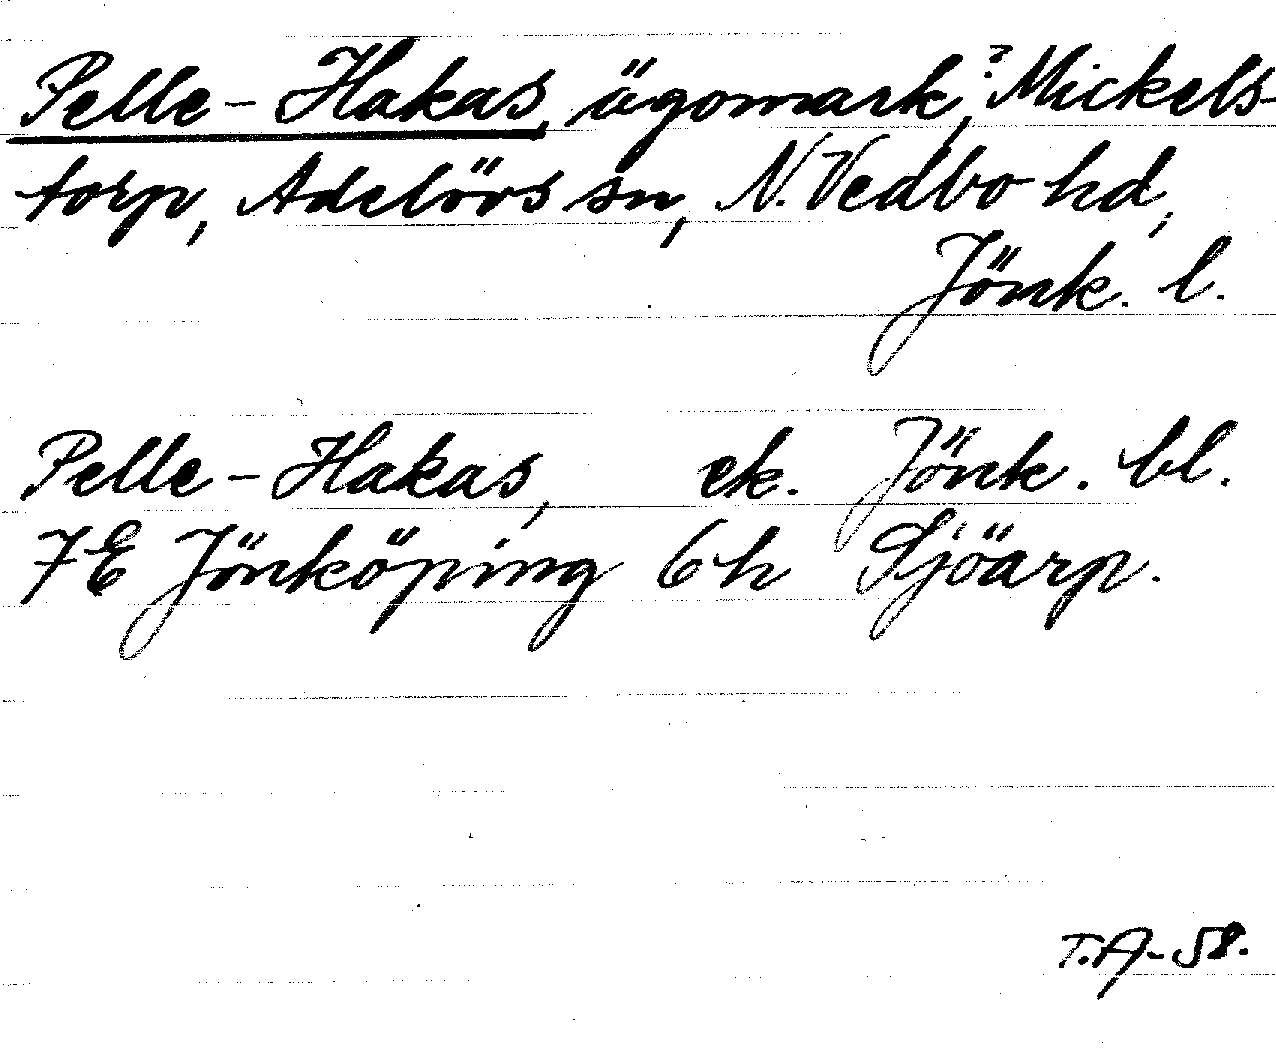 Pelle-Hakas, ägomark, ? Mickels-
torp, Adelövs sn, N. Vedbo hd,
Jönk. l.
Pelle-Hakas, ek. Jönk. bl.
7E Jönköping 6h Sjöarp.
T.A-58.